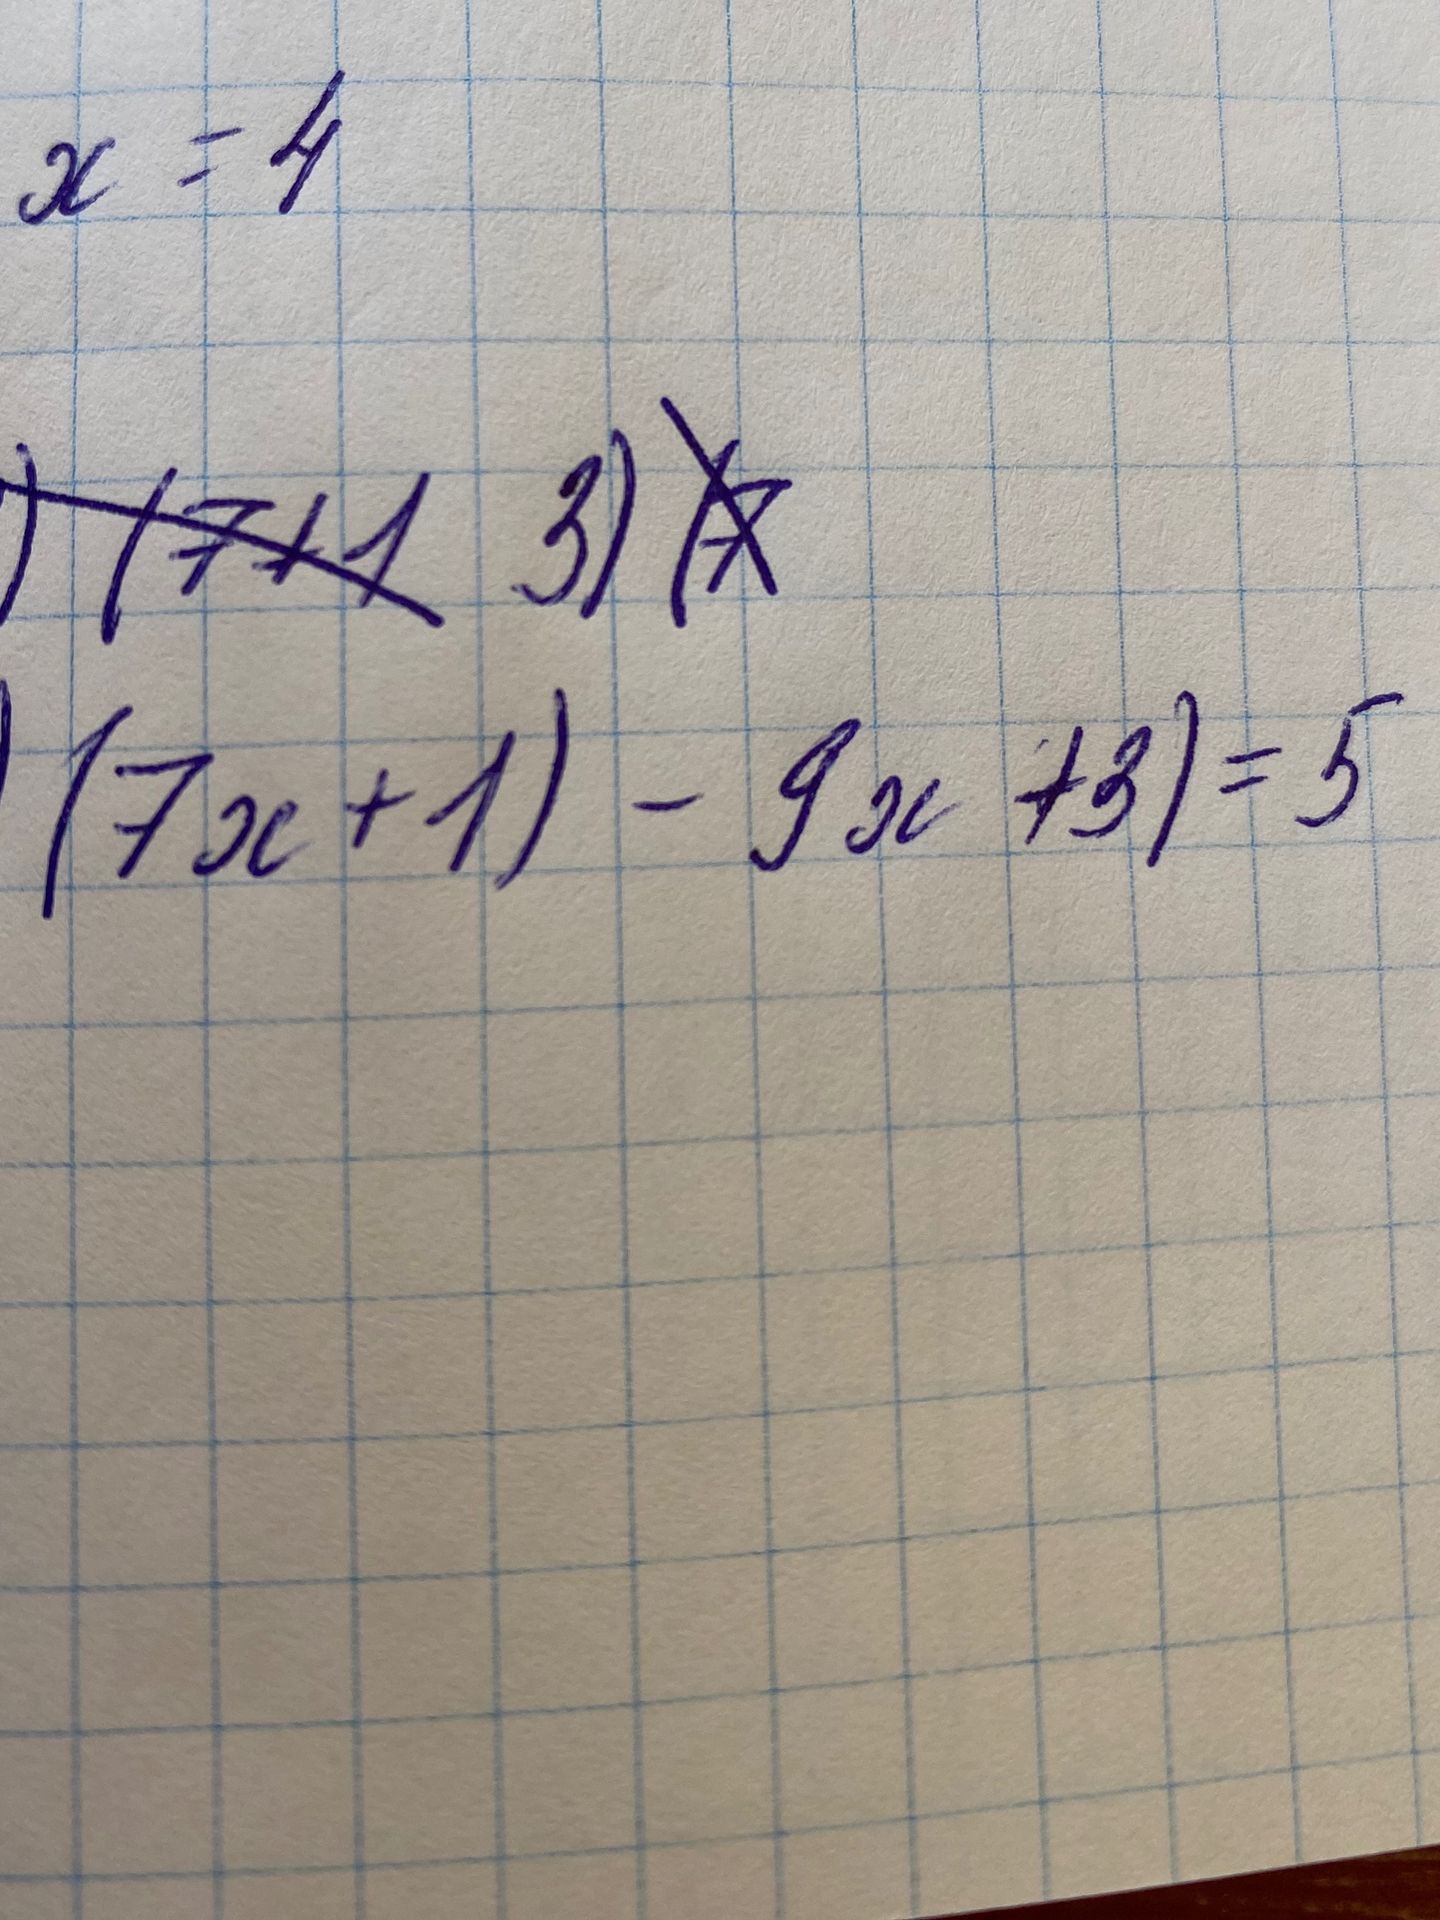 x = 4
) (7+1 3) (7
) (7x+1) - 9x +3) = 5